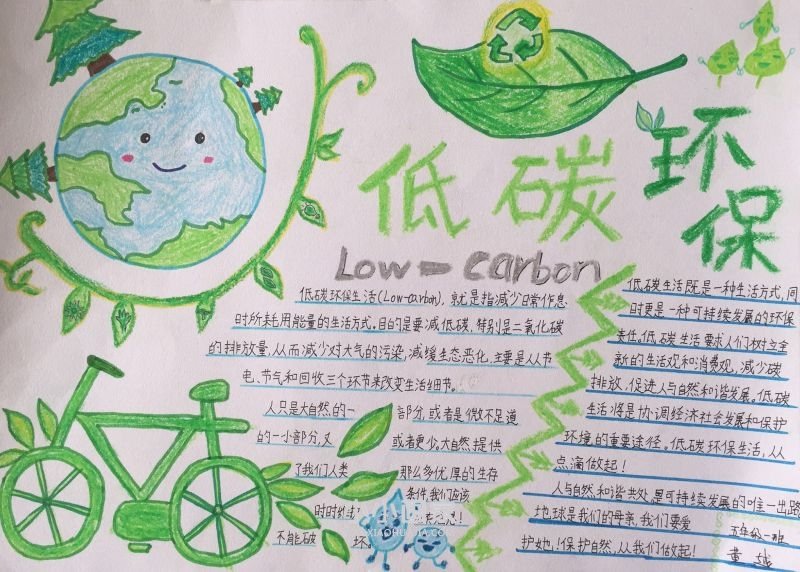 低碳环保
Low-carbon
低碳环保生活(Low-carbon),就是指减少日常作息
时所耗用能量的生活方式。目的是要减低碳,特别是二氧化碳
的排放量,从而减少对大气的污染,减缓生态恶化,主要是从节
电、节气和回收三个环节来改变生活细节。
人只是大自然的一
部分,或者是微不足道
的一小部分,又
或者更少。大自然提供
了我们人类
那么多优厚的生存
条件,我们应该
时时
不能破
低碳生活既是一种生活方式,同
时更是一种可持续发展的环保
责任。低碳生活要求人们树立全
新的生活观和消费观,减少碳
排放,促进人与自然和谐发展。低碳
生活将是协调经济社会发展和保护
环境的重要途径。低碳环保生活,从
点滴做起!
人与自然和谐共处是可持续发展的唯一出路
地球是我们的母亲,我们要爱
护她!保护自然,从我们做起!
五年级一班
黄